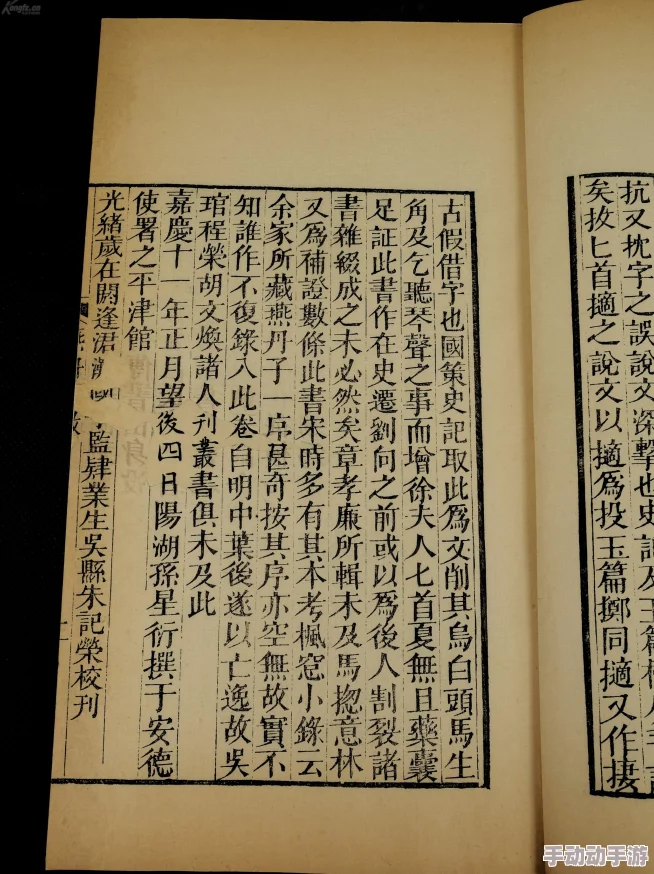 抗又枕字之誤說文深擊也史記及玉篇
矣拔匕首擿之說文以擿爲投玉篇擲同擿又作
古假借字也國策史記取此爲文削其烏白頭馬生
角及乞聽琴聲之事而增徐夫人七首夏無且藥囊
足証此書作在史遷劉向之前或以爲後人割裂諸
書雜綴成之未必然矣章孝廉所輯未及馬揔意林
又爲補證數條此書宋時多有其本考楓窓小錄云
余家所藏燕丹子一序甚奇按其序亦空無故實不
知誰作不復錄入此卷自明中葉後遂以亡逸故吳
琯程榮胡文煥諸人刊叢書俱未及此
嘉慶十一年正月望後四日陽湖孫星衍撰于安德
使署之平津館
光緒歲在閼逢涒國監肄業生吳縣朱記榮校刊
十一
手动动手游